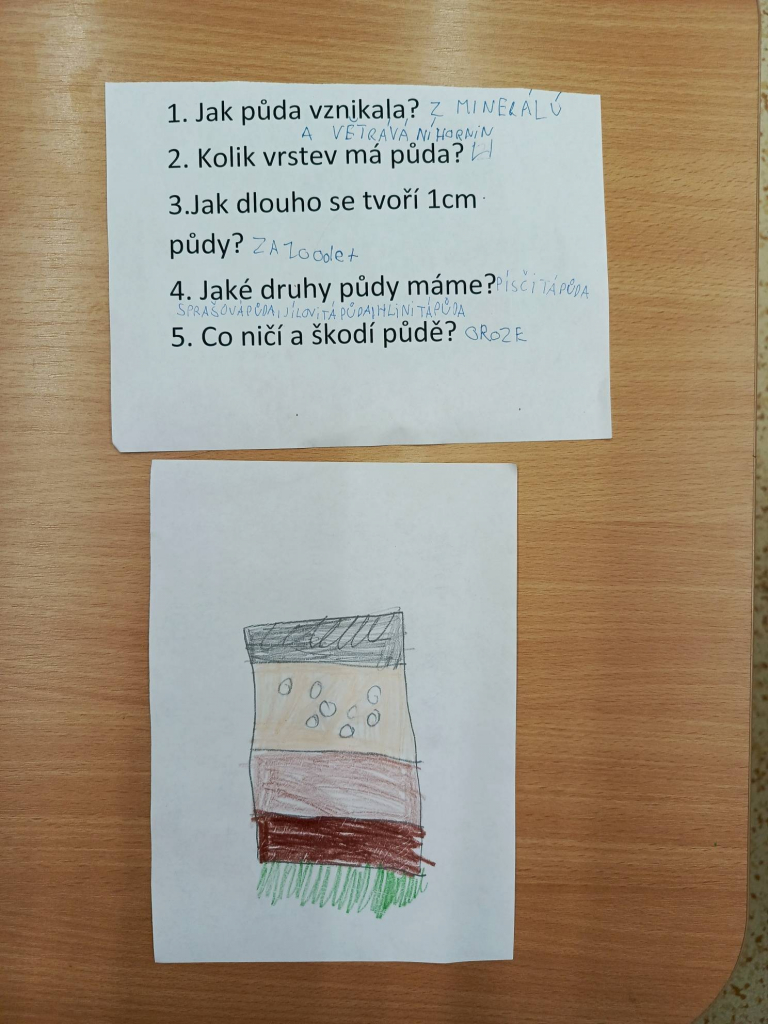 1. Jak půda vznikala? Z MINERÁLŮ
A VĚTRÁVÁNÍ HORNIN
2. Kolik vrstev má půda? 4
3.Jak dlouho se tvoří 1cm
půdy? ZA 200 let
4. Jaké druhy půdy máme? PÍSČITÁ PŮDA
SPRAŠOVÁ PŮDA, JÍLOVITÁ PŮDA, HLINITÁ PŮDA
5. Co ničí a škodí půdě? OROZE